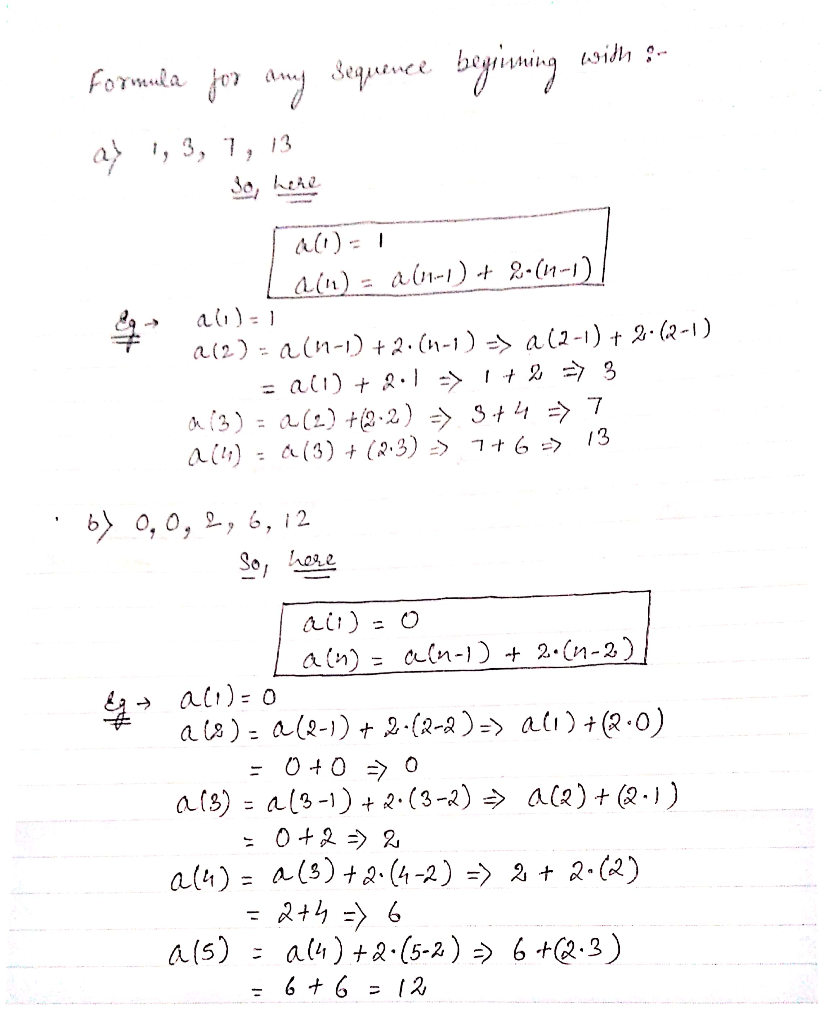 Formula for any sequence beginning with :-
a) 1, 3, 7, 13
So, here
a(1) = 1
a(n) = a(n-1) + 2·(n-1)
Eg → a(1) = 1
a(2) = a(n-1) + 2·(n-1) => a(2-1) + 2·(2-1)
= a(1) + 2·1 => 1 + 2 => 3
a(3) = a(2) + (2·2) => 3 + 4 => 7
a(4) = a(3) + (2·3) => 7 + 6 => 13
b) 0, 0, 2, 6, 12
So, here
a(1) = 0
a(n) = a(n-1) + 2·(n-2)
Eg → a(1) = 0
a(2) = a(2-1) + 2·(2-2) => a(1) + (2·0)
= 0 + 0 => 0
a(3) = a(3-1) + 2·(3-2) => a(2) + (2·1)
= 0 + 2 => 2
a(4) = a(3) + 2·(4-2) => 2 + 2·(2)
= 2 + 4 => 6
a(5) = a(4) + 2·(5-2) => 6 + (2·3)
= 6 + 6 = 12